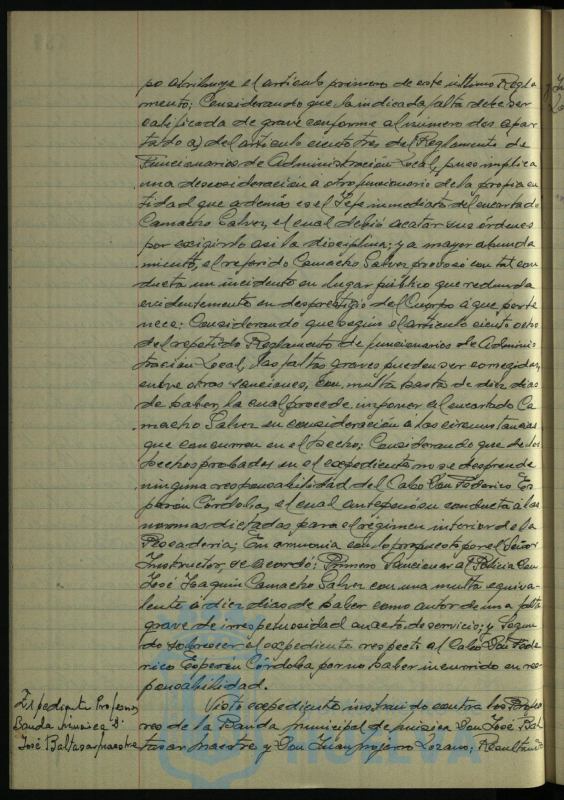 po atribuye el artículo primero de este último Regla
mento; Considerando que la indicada falta debe ser
calificada de grave conforme al número dos apar
tado a) del artículo ciento tres del Reglamento de
Funcionarios de Administración Local, pues implica
una desconsideración a otro funcionario de la propia en
tidad que además es el Jefe inmediato del encartado
Camacho Galvez, el cual debió acatar sus órdenes
por exigirlo así la disciplina; y a mayor abunda
miento, el referido Camacho Galvez provocó con tal con
ducta un incidente en lugar público que redunda
evidentemente en desprestigio del Cuerpo a que perte
nece; Considerando que según el artículo ciento ocho
del repetido Reglamento de funcionarios de Adminis
tración Local, las faltas graves pueden ser corregidas,
entre otras sanciones, con multa hasta de diez días
de haber, la cual procede imponer al encartado Ca
macho Galvez en consideración a las circunstancias
que concurren en el hecho; Considerando que de los
hechos probados en el expediente no se desprende
ninguna responsabilidad del Cabo Don Federico
Córdoba, el cual su conducta a las
normas dictadas para el régimen interior de la
Pescadería; En armonía con lo propuesto por el Señor
Instructor, se acordó: Primero Sancionar al Policía Don
José Joaquín Camacho Galvez con una multa equiva
lente a diez días de haber como autor de una falta
grave de irrespetuosidad en acto de servicio; y Segun
do sobreseer el expediente respecto al Cabo Don Fede
rico Córdoba por no haber incurrido en res
ponsabilidad.
Expediente Profesores
Banda música D.
José Baltasar Maestre
Visto expediente instruido contra los Profe
res de la Banda municipal de música Don José Bal
tasar Maestre y Don Juan Lozano; Resultando
HUELVA